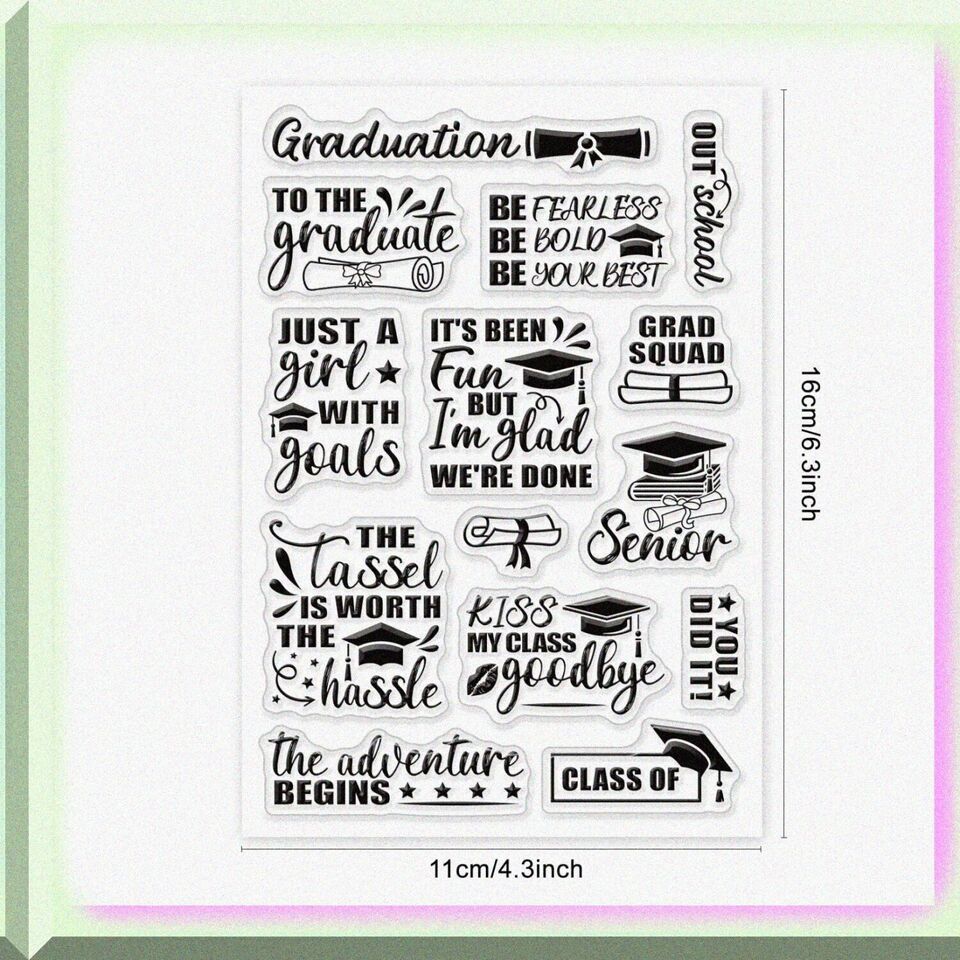 Graduation
OUT school
TO THE
graduate
BE FEARLESS
BE BOLD
BE YOUR BEST
JUST A
girl
WITH
goals
IT'S BEEN
Fun
BUT
I'm glad
WE'RE DONE
GRAD
SQUAD
Senior
THE
Tassel
IS WORTH
THE
hassle
KISS
MY CLASS
goodbye
YOU
DID IT!
the adventure
BEGINS
CLASS OF
16cm/6.3inch
11cm/4.3inch